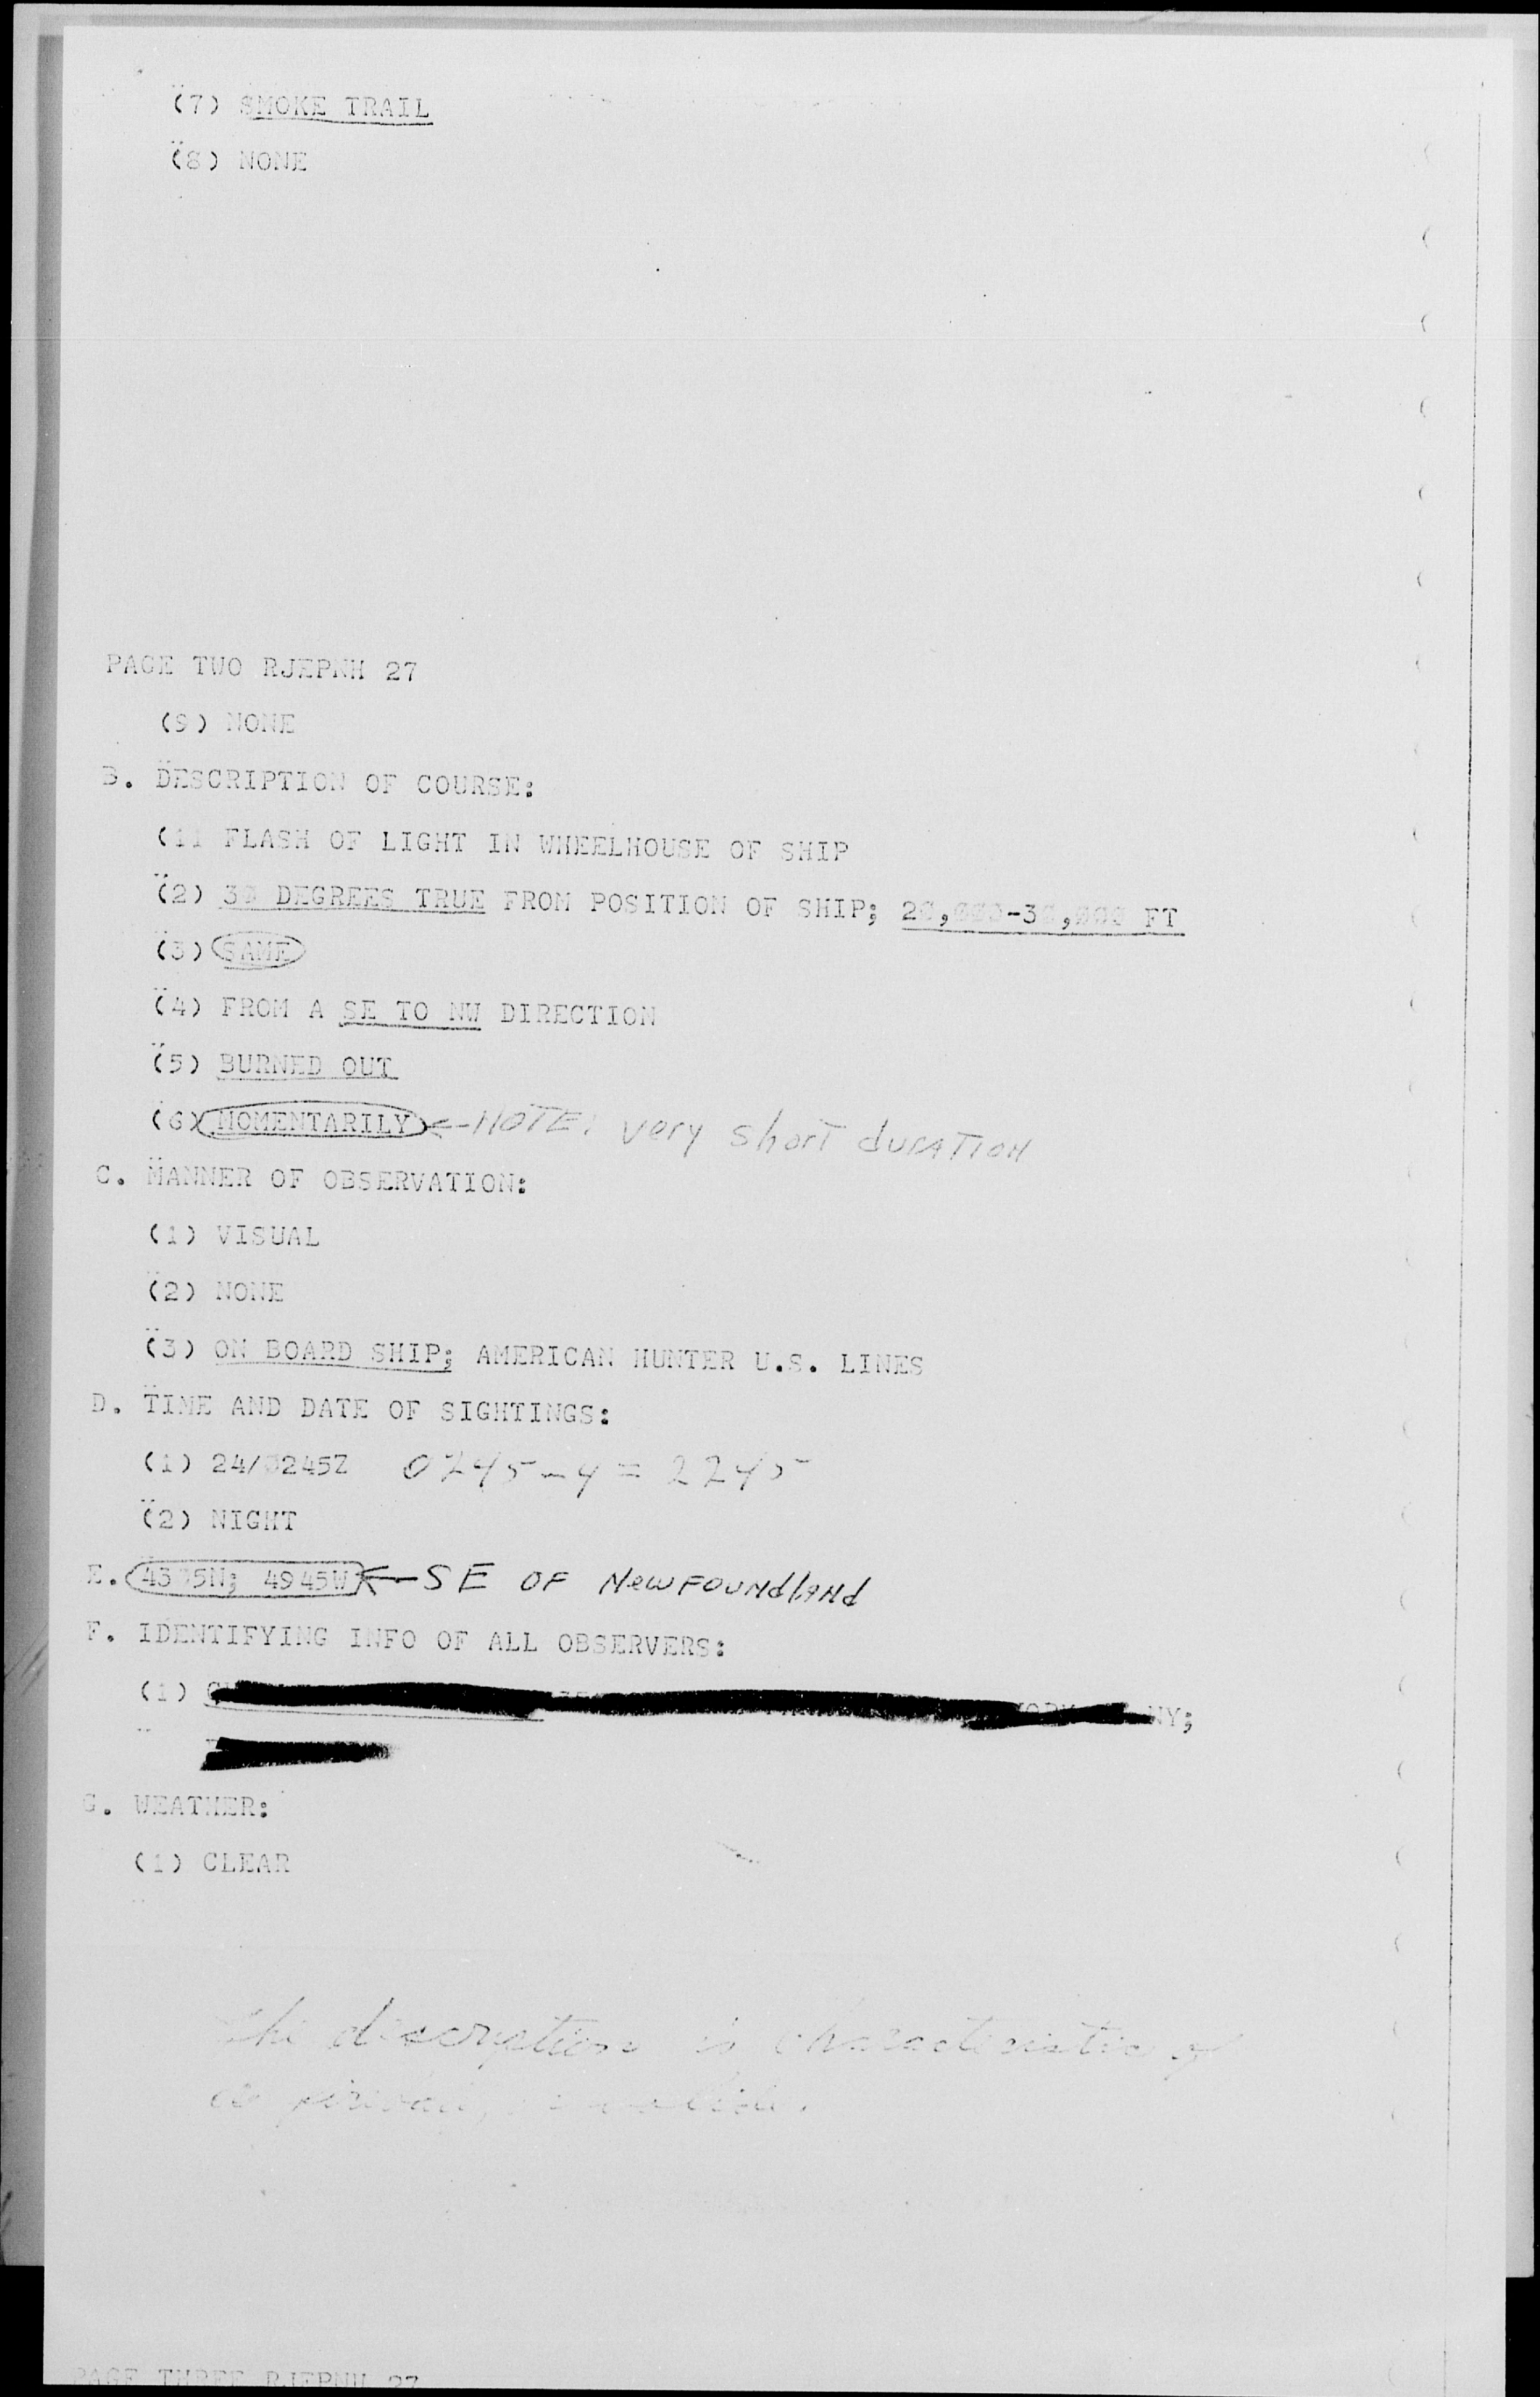 (7) SMOKE TRAIL
(8) NONE
PAGE TWO RJEPNH 27
(9) NONE
B. DESCRIPTION OF COURSE:
(1) FLASH OF LIGHT IN WHEELHOUSE OF SHIP
(2) 30 DEGREES TRUE FROM POSITION OF SHIP; 20,000-30,000 FT
(3) SAME
(4) FROM A SE TO NW DIRECTION
(5) BURNED OUT
(6) MOMENTARILY <-NOTE: very short duration
C. MANNER OF OBSERVATION:
(1) VISUAL
(2) NONE
(3) ON BOARD SHIP; AMERICAN HUNTER U.S. LINES
D. TIME AND DATE OF SIGHTINGS:
(1) 24/0245Z 0245-4=2245
(2) NIGHT
E. 4945W <-SE OF NewFOUNdlANd
F. IDENTIFYING INFO OF ALL OBSERVERS:
(1) NY;
G. WEATHER:
(1) CLEAR
The description is characteristic of
a
PAGE THREE RJEPNH 27